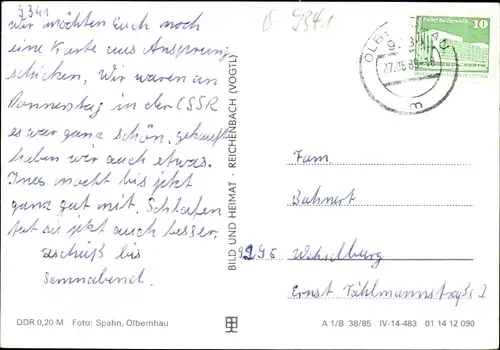 9341
wir möchten Euch noch
eine Karte aus Ansprung
schicken. Wir waren am
Donnerstag in der CSSR
es war ganz schön, gekauft
haben wir auch etwas.
Ines macht bis jetzt
ganz gut mit. Schlafen
tut sie jetzt auch besser.
bis
Sonnabend.
9341
10
OLB
27.06.89-18
m
BILD UND HEIMAT · REICHENBACH (VOGTL)
Fam.
Bahnert
9295 Wechselburg
Ernst Thälmannstraße 2
DDR 0,20 M Foto: Spahn, Olbernhau
A 1/B 38/85 IV-14-483 01 14 12 090